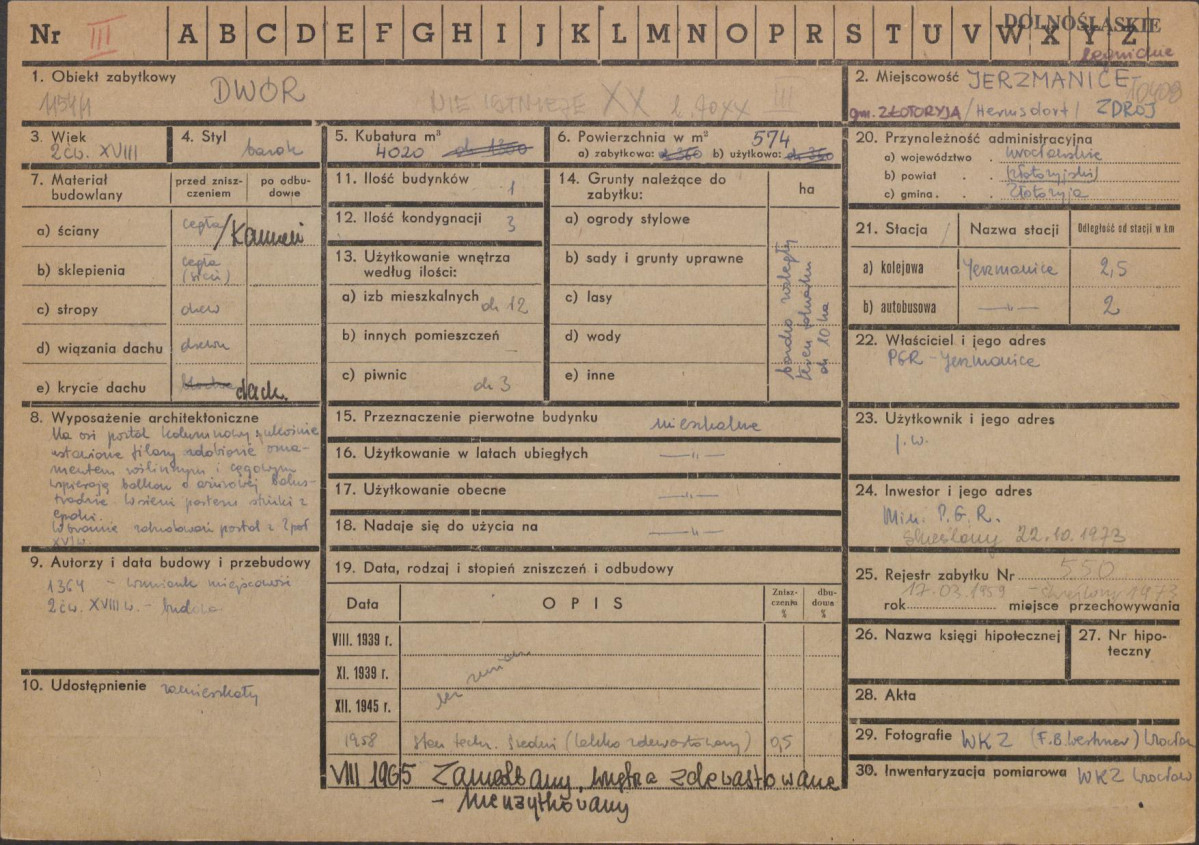 Nr III A B C D E F G H I J K L M N O P R S T U V W X Y Z
DOLNOŚLĄSKIE
legnickie
1. Obiekt zabytkowy
1154/1
DWÓR
NIE ISTNIEJE XX III
2. Miejscowość JERZMANICE
gm. ZŁOTORYJA /Hermsdorf/ ZDRÓJ
3. Wiek
2 ćw. XVIII
4. Styl
barok
5. Kubatura m³
4020
6. Powierzchnia w m² 574
a) zabytkowa: ok 360 b) użytkowa: ok 360
20. Przynależność administracyjna
a) województwo . wrocławskie
b) powiat . . złotoryjski
c) gmina . . Złotoryja
7. Materiał budowlany
przed znisz-
czeniem
po odbu-
dowie
a) ściany cegła/Kamień
b) sklepienia cegła
(sień)
c) stropy drew
d) wiązania dachu drewn
e) krycie dachu dach.
11. Ilość budynków 1
12. Ilość kondygnacji 3
13. Użytkowanie wnętrza
według ilości:
a) izb mieszkalnych ok 12
b) innych pomieszczeń
c) piwnic ok 3
14. Grunty należące do
zabytku:
ha
a) ogrody stylowe
b) sady i grunty uprawne
c) lasy
d) wody
e) inne
bardzo rozległy
teren
ok 10 ha
21. Stacja Nazwa stacji Odległość od stacji w km
a) kolejowa Jerzmanice 2,5
b) autobusowa —„— 2
22. Właściciel i jego adres
PGR - Jerzmanice
8. Wyposażenie architektoniczne
Na osi portal kolumnowy, ukośnie
ustawione filary zdobione orna-
mentem roślinnym i cęgowym
wspierają balkon o ażurowej balus-
tradzie. W sieni
epoki.
portal z 2 poł
XVI w.
15. Przeznaczenie pierwotne budynku mieszkalne
16. Użytkowanie w latach ubiegłych —„—
17. Użytkowanie obecne —„—
18. Nadaje się do użycia na —„—
23. Użytkownik i jego adres
j.w.
24. Inwestor i jego adres
Min. P.G.R.
Skreślony 22.10.1973
9. Autorzy i data budowy i przebudowy
1364 - wzmianka miejscowość
2 ćw. XVIII w. - budowa
19. Data, rodzaj i stopień zniszczeń i odbudowy
Data OPIS Znisz-
czenia
%
dbu-
dowa
%
VIII. 1939 r.
XI. 1939 r.
bez zmian
XII. 1945 r.
1958 Stan techn. średni (lekko zdewastowany) 0,5
VIII 1965 Zaniedbany, wnętrza zdewastowane
- nieużytkowany
25. Rejestr zabytku Nr 550
17.03.1959 - skreślony 1973
rok miejsce przechowywania
26. Nazwa księgi hipotecznej
27. Nr hipo-
teczny
10. Udostępnienie zamieszkały
28. Akta
29. Fotografie WKZ (F.B. Werhner) Wrocław
30. Inwentaryzacja pomiarowa WKZ Wrocław